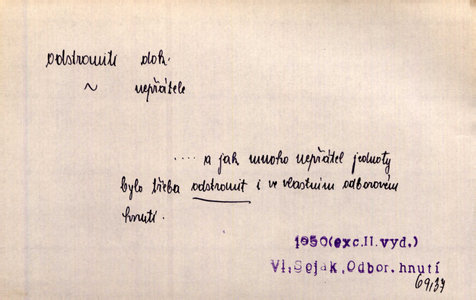 odstraniti dok.
~ nepřátele
.... a jak mnoho nepřátel jednoty
bylo třeba odstranit i ve vlastním odborovém
hnutí.
1950(exc.II.vyd.)
Vl.Sejak,Odbor.hnutí
69,37